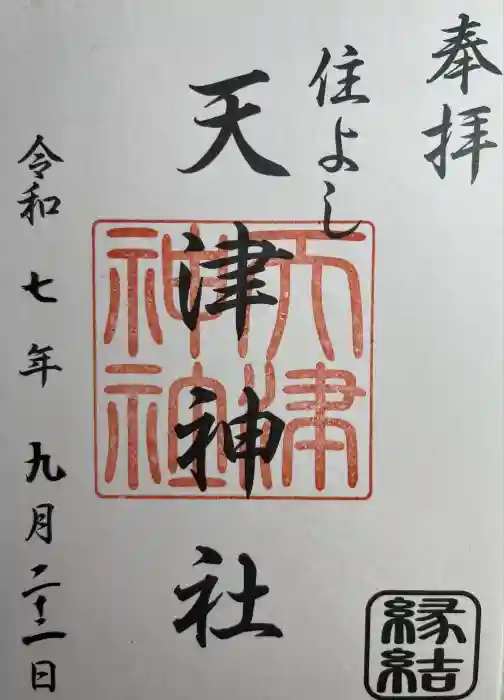 奉拝
住よし
天津神社
天津
神社
令和七年九月二十二日
縁結